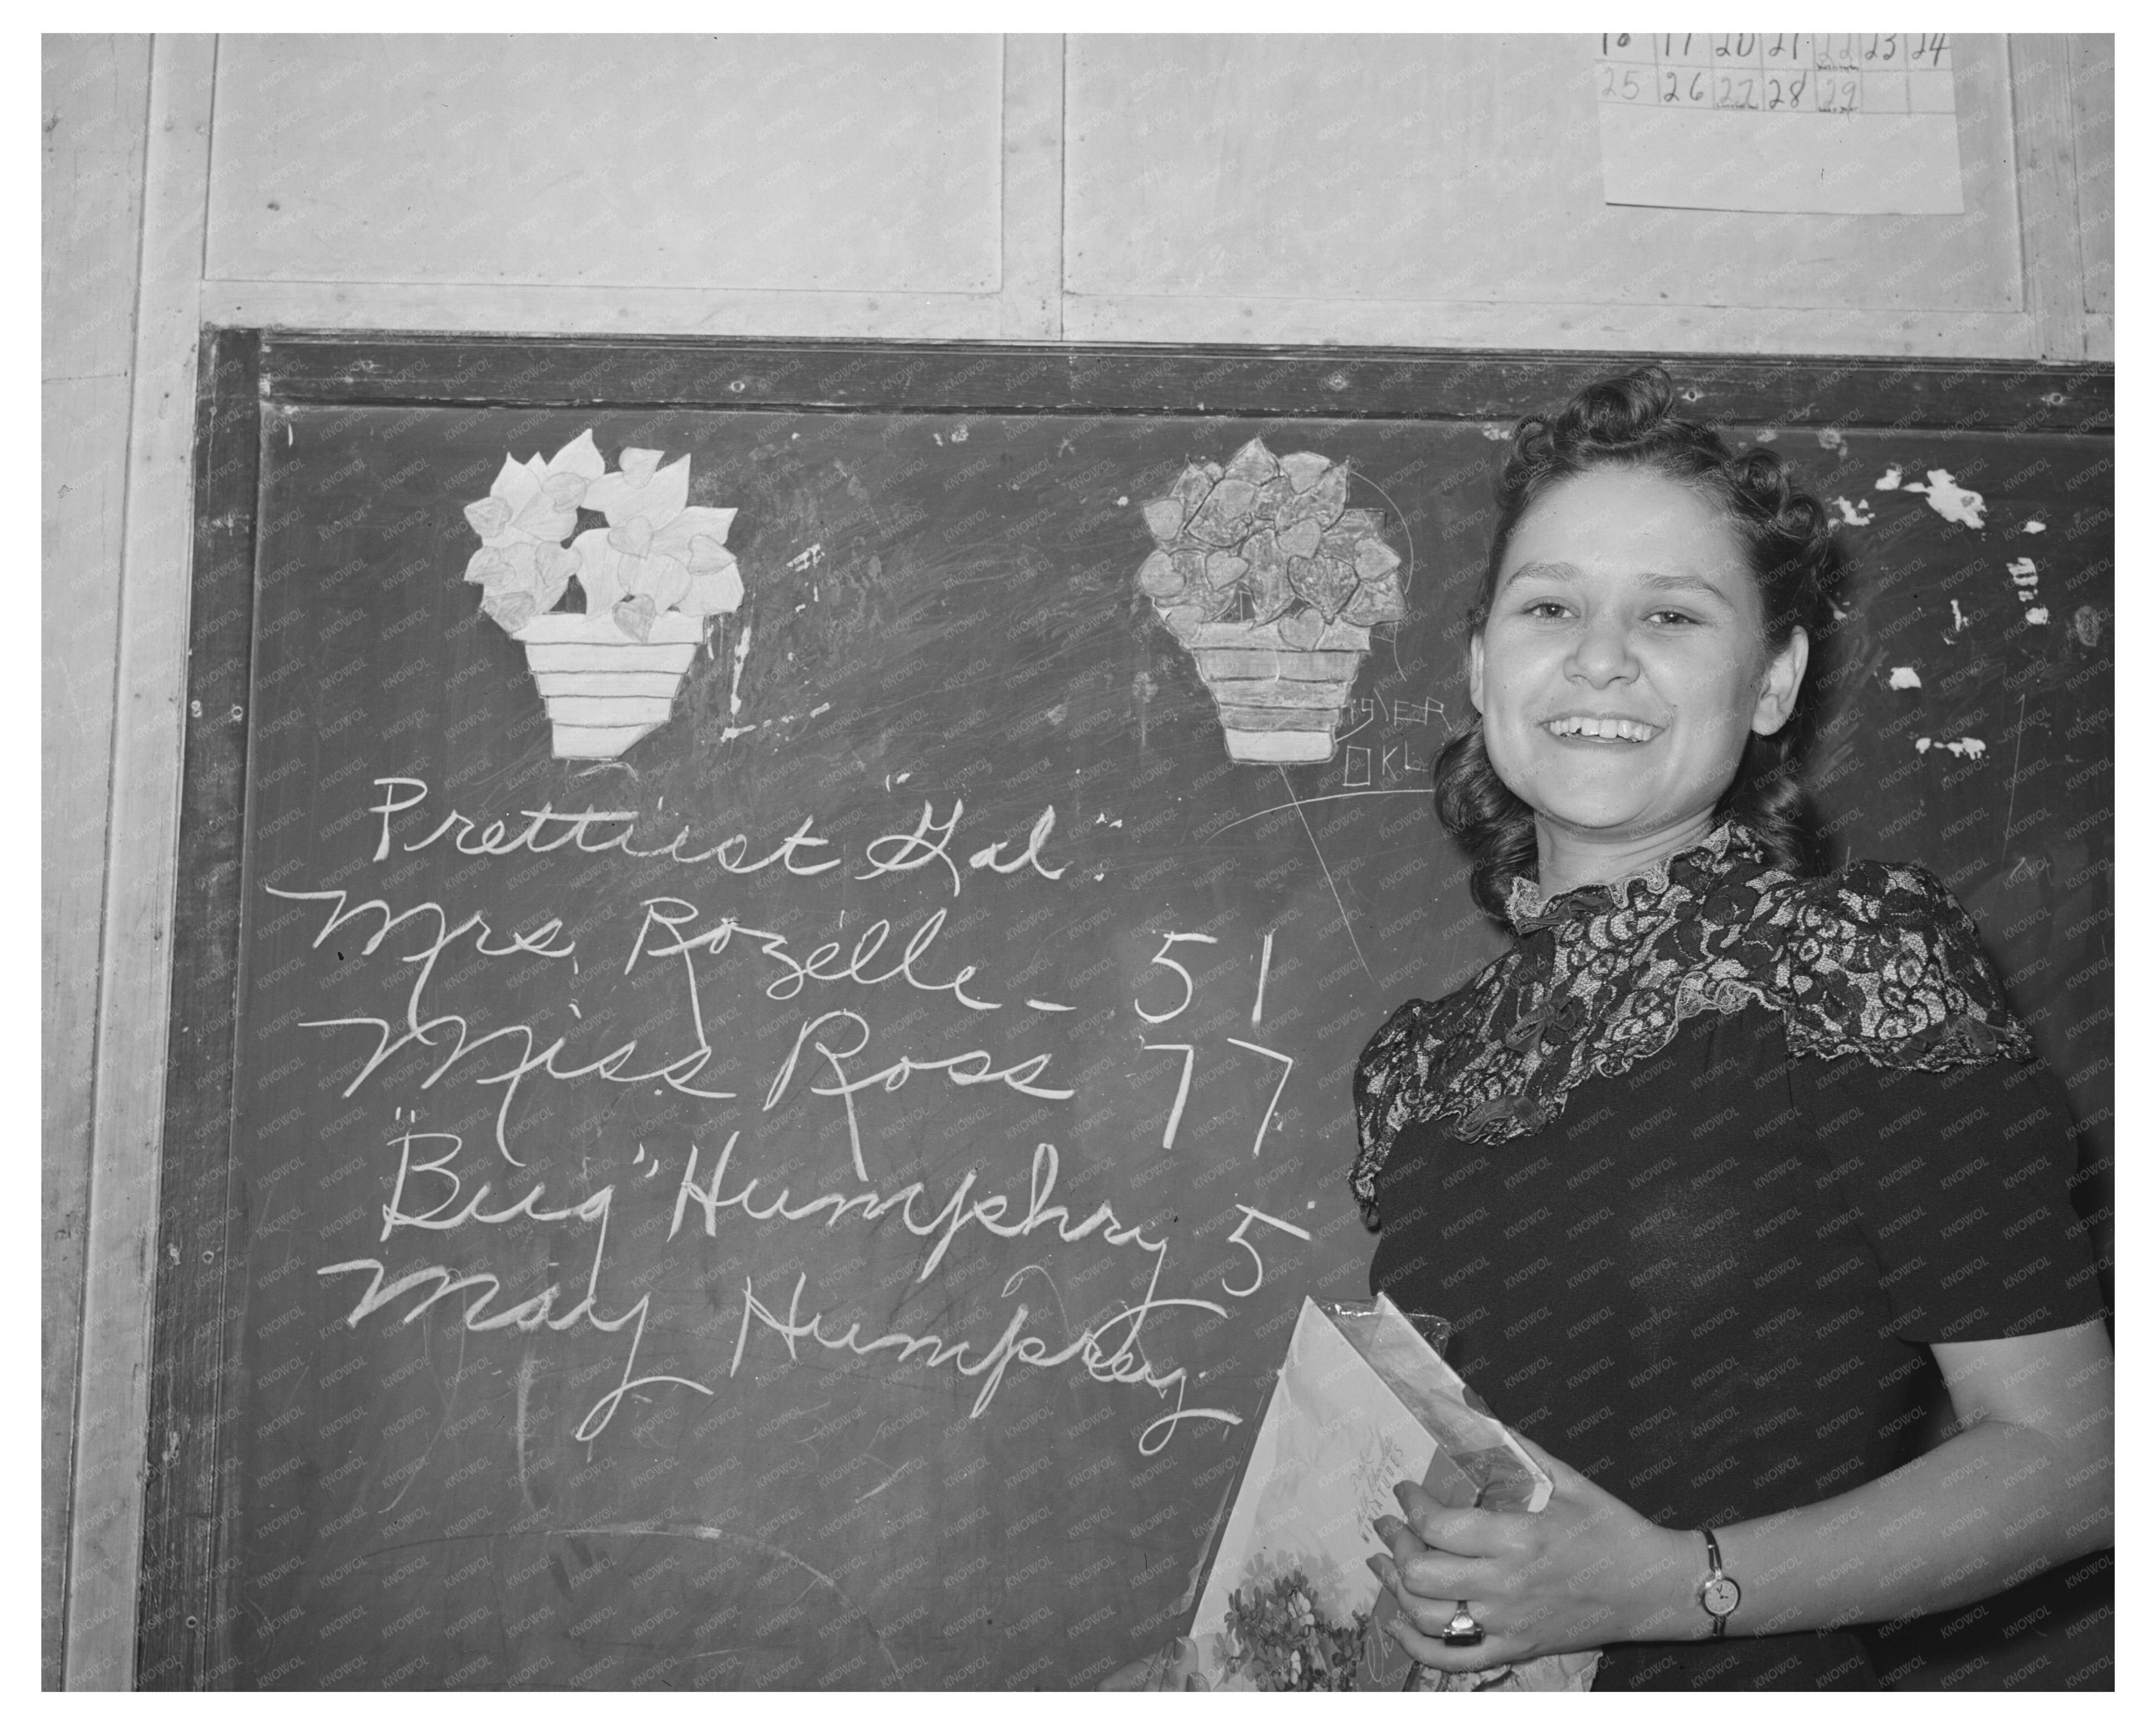 18 19 20 21 22 23 24
25 26 27 28 29
IGLER
OKL
Prettiest "Gal"
Mrs. Rozelle - 51
Miss Ross 77
"Bug" Humphry 5
May Humphrey
KNOWOL